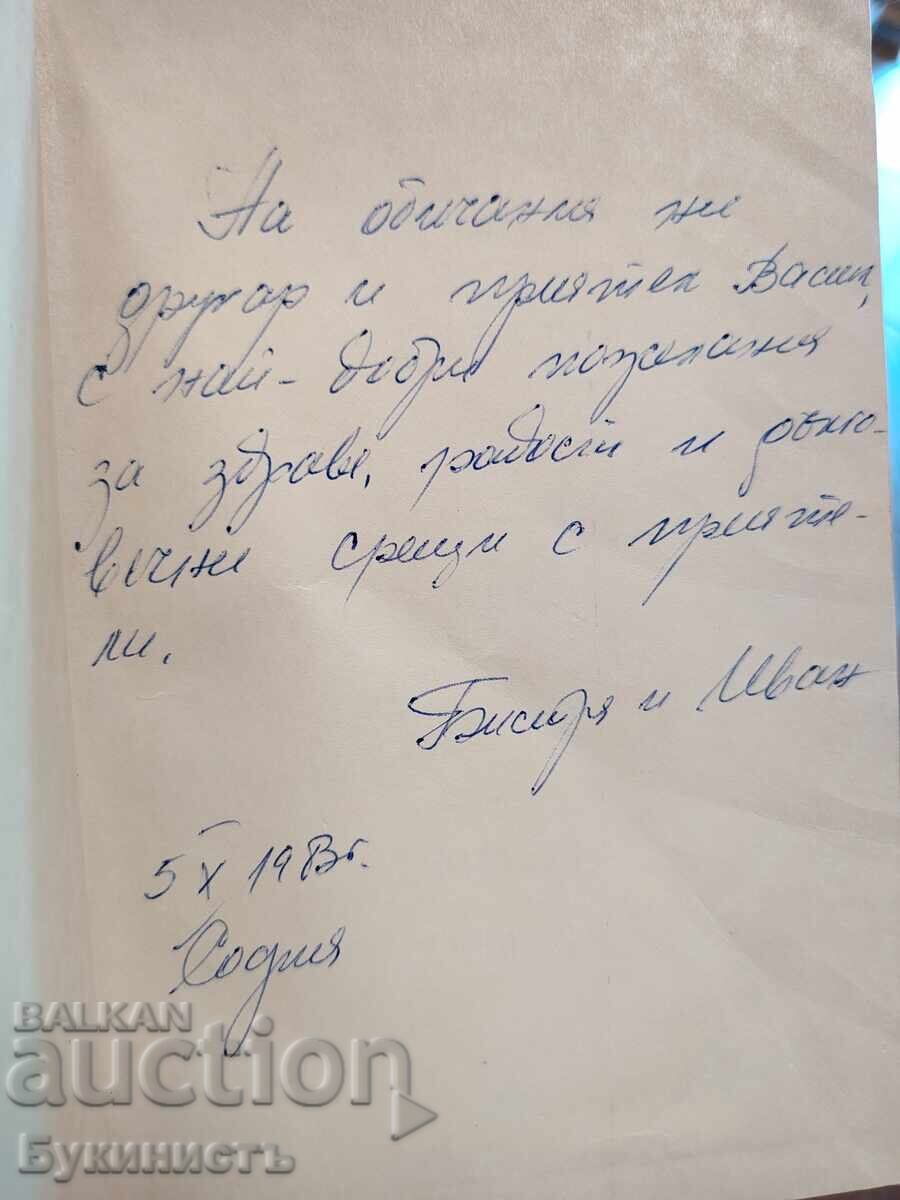 На обичания ни
другар и приятел Васил,
с най-добри пожелания
за здраве, радост и дълго-
вечни срещи с прияте-
ли.
Бистря и Иван
5 X 1983г.
София
BALKAN
auction
Букинистъ